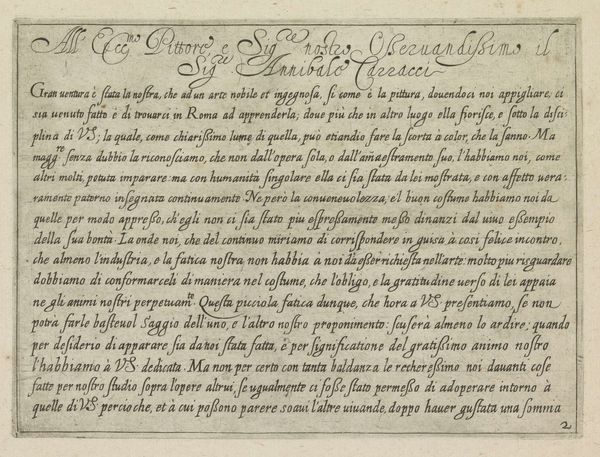 All' Ecc.mo Pittore, e Sig.re nostro Osservandissimo il
Sig.re Annibale Carracci
Gran ventura è stata la nostra, che ad un arte nobile et ingegnosa, si come è la pittura, douendoci noi appigliare, ci
sia uenuto fatto è di trouarci in Roma ad apprenderla; doue più che in altro luogo ella fiorisce, e sotto la disci-
plina di VS; la quale, come chiarissimo lume di quella, può etiandio fare la scorta à color, che la sanno. Ma
magg.re senza dubbio la riconosciamo, che non dall'opera sola, o dall'amaestramento suo, l'habbiamo noi, come
altri molti, potuta imparare: ma con humanità singolare ella ci sia stata da lei mostrata, e con affetto uera-
ramente paterno insegnata continuamente. Ne però la conueneuolezza, e'l buon costume habbiamo noi da
quelle per modo appreso, ch'egli non ci sia stato piu espressamente messo dinanzi dal uiuo essempio
della sua bontà. La onde noi, che del continuo miriamo di corrispondere in guisa à cosi felice incontro,
che almeno l'industria, e la fatica nostra non habbia à noi da esser richiesta nell'arte: molto piu risguardare
dobbiamo di conformarceli di maniera nel costume, che l'obligo, e la gratitudine uerso di lei appaia
ne gli animi nostri perpetuam.te Questa picciola fatica dunque, che hora a VS. presentiamo, se non
potrà farle basteuol saggio dell'uno, e l'altro nostro proponimento: scuserà almeno lo ardire; quando
per desiderio di apparare sia da noi stata fatta, e per significatione del gratissimo animo nostro
l'habbiamo à VS. dedicata. Ma non per certo con tanta baldanza le recheressimo noi dauanti cose
fatte per nostro studio sopra l'opere altrui, se ugualmente ci fosse stato permesso di adoperare intorno à
quelle di VS. percioche, et à cui possono parere soaui l'altre uiuande, doppo hauer gustata una somma
2